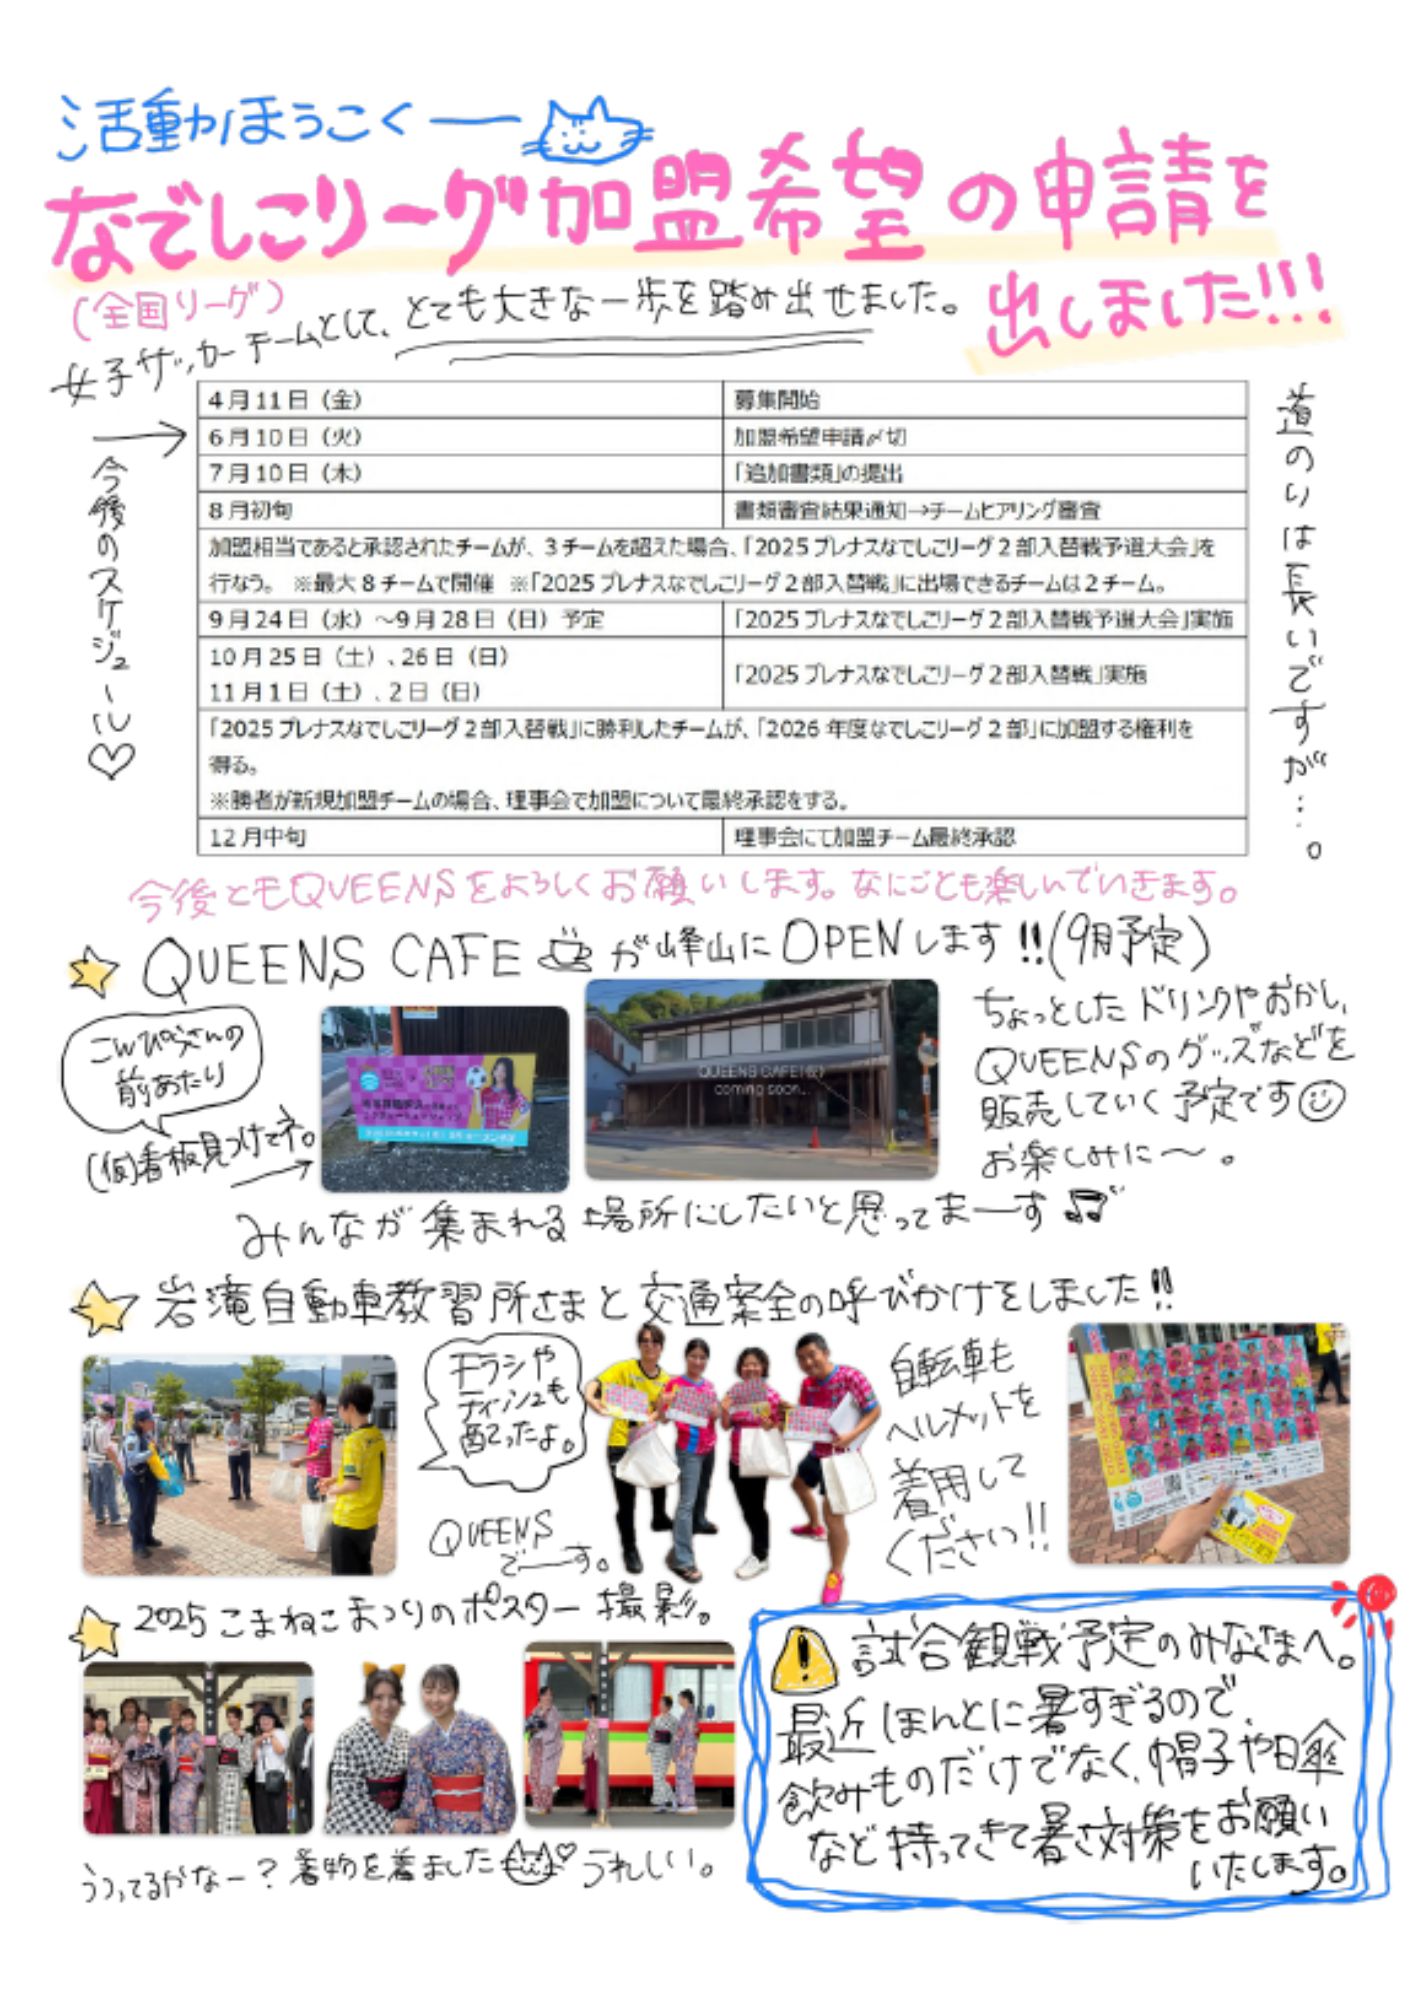 活動ほうこくー
なでしこリーグ加盟希望の申請を
出しました!!!
(全国リーグ)
女子サッカーチームとして、とても大きな一歩を踏み出せました。
今後のスケジュール♡
4月11日（金） 募集開始
6月10日（火） 加盟希望申請〆切
7月10日（木） 「追加書類」の提出
8月初旬 書類審査結果通知→チームヒアリング審査
加盟相当であると承認されたチームが、3チームを超えた場合、「2025プレナスなでしこリーグ2部入替戦予選大会」を
行なう。 ※最大8チームで開催 ※「2025プレナスなでしこリーグ2部入替戦」に出場できるチームは2チーム。
9月24日（水）～9月28日（日）予定 「2025プレナスなでしこリーグ2部入替戦予選大会」実施
10月25日（土）、26日（日）
11月1日（土）、2日（日）
「2025プレナスなでしこリーグ2部入替戦」実施
「2025プレナスなでしこリーグ2部入替戦」に勝利したチームが、「2026年度なでしこリーグ2部」に加盟する権利を
得る。
※勝者が新規加盟チームの場合、理事会で加盟について最終承認をする。
12月中旬 理事会にて加盟チーム最終承認
道のりは長いですが…。
今後ともQUEENSをよろしくお願いします。なにごとも楽しんでいきます。
QUEENS CAFE が峰山にOPENします!!(9月予定)
こんぴらさんの
前あたり
(仮)看板見つけてネ。
QUEENS CAFE(仮)
coming soon...
ちょっとしたドリンクやおかし、
QUEENSのグッズなどを
販売していく予定です
お楽しみに～。
みんなが集まれる場所にしたいと思ってまーす♫
岩滝自動車教習所さまと交通安全の呼びかけをしました!!
チラシや
ティッシュも
配ったよ。
QUEENS
でーす。
自転車も
ヘルメットを
着用して
ください!!
2025こまねこまつりのポスター撮影。
うつってるかなー？着物を着ました♡うれしい。
試合観戦予定のみなさまへ。
最近ほんとに暑すぎるので、
飲みものだけでなく、帽子や日傘
など持ってきて暑さ対策をお願い
いたします。